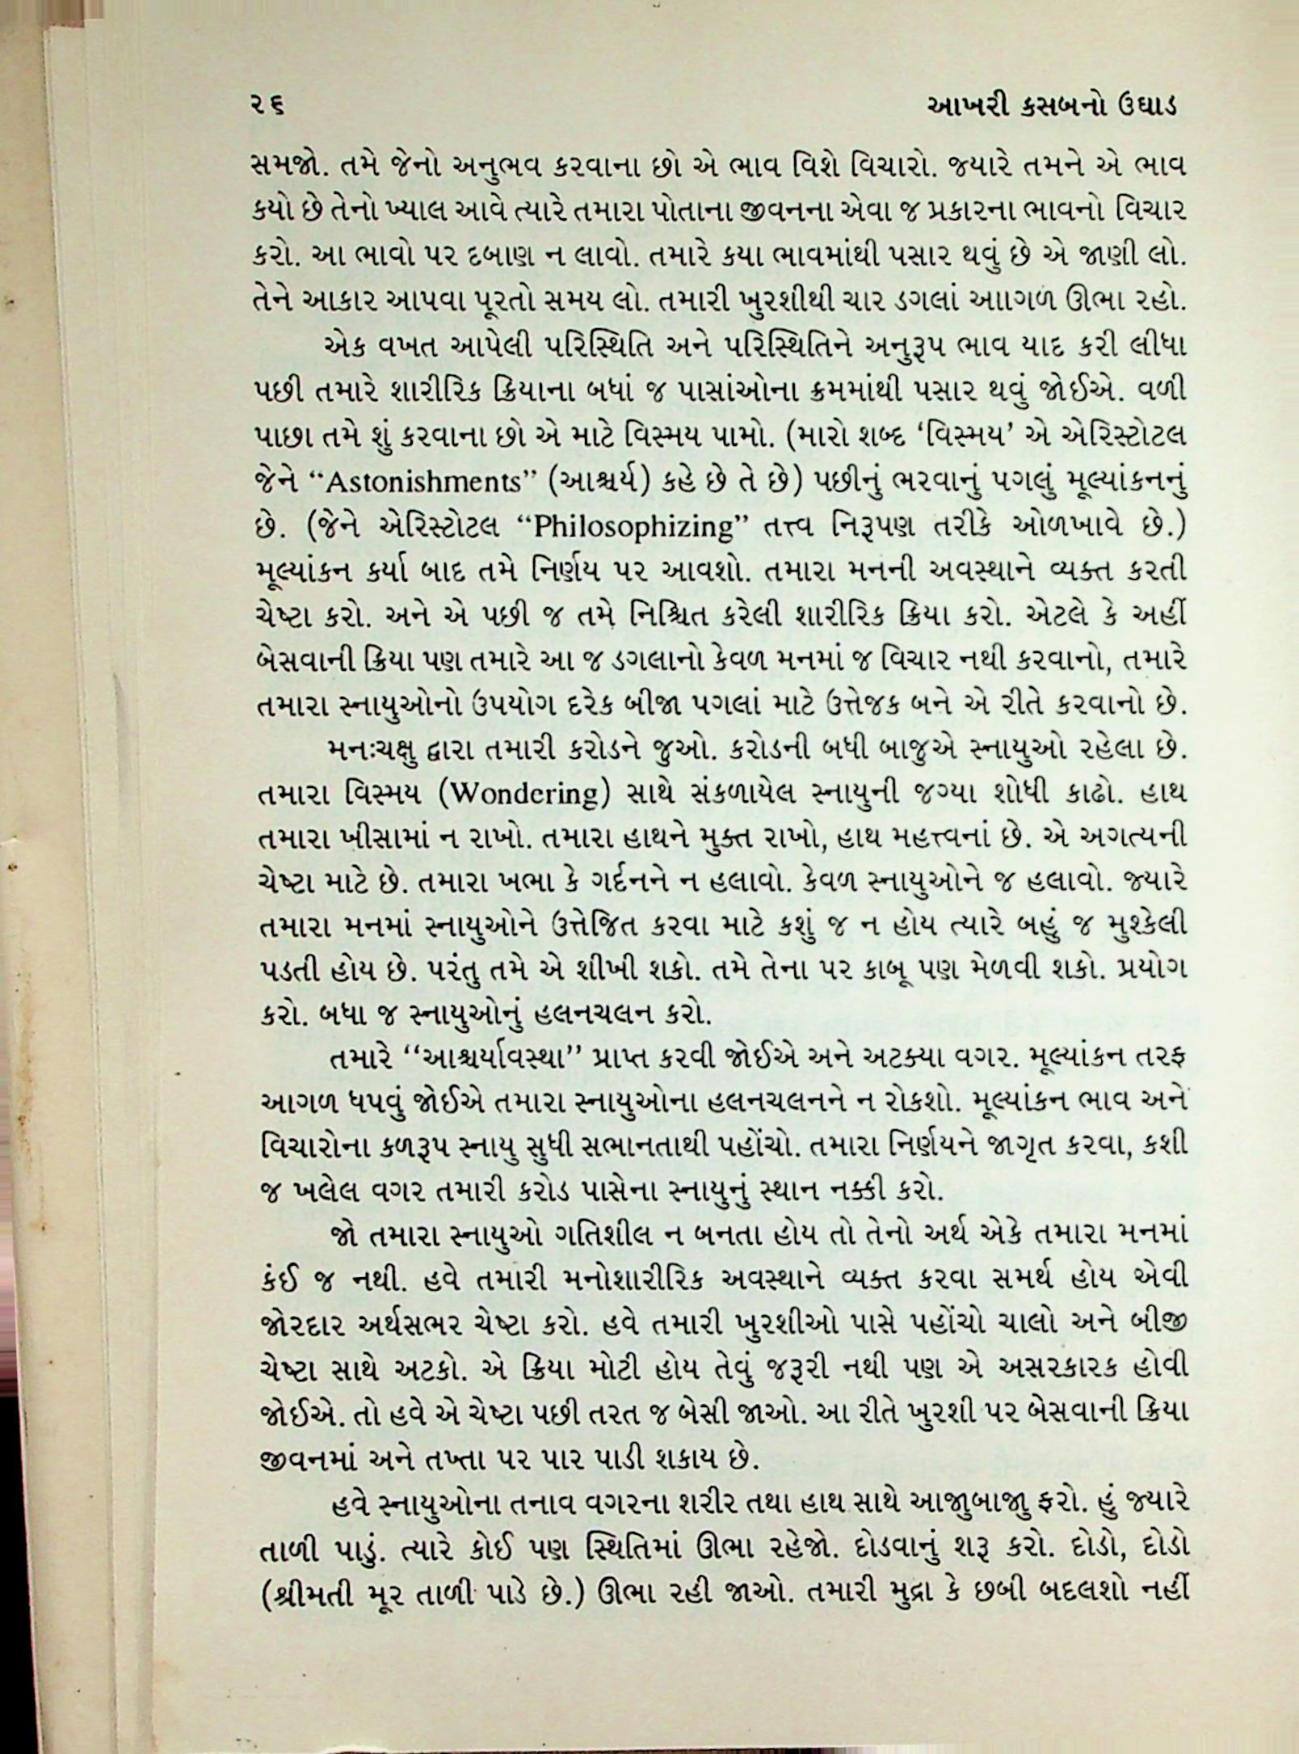 ૨૬ આખરી કસબનો ઉઘાડ
સમજો. તમે જેનો અનુભવ કરવાના છો એ ભાવ વિશે વિચારો. જ્યારે તમને એ ભાવ
કયો છે તેનો ખ્યાલ આવે ત્યારે તમારા પોતાના જીવનના એવા જ પ્રકારના ભાવનો વિચાર
કરો. આ ભાવો પર દબાણ ન લાવો. તમારે કયા ભાવમાંથી પસાર થવું છે એ જાણી લો.
તેને આકાર આપવા પૂરતો સમય લો. તમારી ખુરશીથી ચાર ડગલાં આાગળ ઊભા રહો.
એક વખત આપેલી પરિસ્થિતિ અને પરિસ્થિતિને અનુરૂપ ભાવ યાદ કરી લીધા
પછી તમારે શારીરિક ક્રિયાના બધાં જ પાસાંઓના ક્રમમાંથી પસાર થવું જોઈએ. વળી
પાછા તમે શું કરવાના છો એ માટે વિસ્મય પામો. (મારો શબ્દ ‘વિસ્મય’ એ એરિસ્ટોટલ
જેને “Astonishments” (આશ્ચર્ય) કહે છે તે છે) પછીનું ભરવાનું પગલું મૂલ્યાંકનનું
છે. (જેને એરિસ્ટોટલ “Philosophizing” તત્ત્વ નિરૂપણ તરીકે ઓળખાવે છે.)
મૂલ્યાંકન કર્યા બાદ તમે નિર્ણય પર આવશો. તમારા મનની અવસ્થાને વ્યક્ત કરતી
ચેષ્ટા કરો. અને એ પછી જ તમે નિશ્ચિત કરેલી શારીરિક ક્રિયા કરો. એટલે કે અહીં
બેસવાની ક્રિયા પણ તમારે આ જ ડગલાનો કેવળ મનમાં જ વિચાર નથી કરવાનો, તમારે
તમારા સ્નાયુઓનો ઉપયોગ દરેક બીજા પગલાં માટે ઉત્તેજક બને એ રીતે કરવાનો છે.
મનઃચક્ષુ દ્વારા તમારી કરોડને જુઓ. કરોડની બધી બાજુએ સ્નાયુઓ રહેલા છે.
તમારા વિસ્મય (Wondering) સાથે સંકળાયેલ સ્નાયુની જગ્યા શોધી કાઢો. હાથ
તમારા ખીસામાં ન રાખો. તમારા હાથને મુક્ત રાખો, હાથ મહત્ત્વનાં છે. એ અગત્યની
ચેષ્ટા માટે છે. તમારા ખભા કે ગર્દનને ન હલાવો. કેવળ સ્નાયુઓને જ હલાવો. જ્યારે
તમારા મનમાં સ્નાયુઓને ઉત્તેજિત કરવા માટે કશું જ ન હોય ત્યારે બહું જ મુશ્કેલી
પડતી હોય છે. પરંતુ તમે એ શીખી શકો. તમે તેના પર કાબૂ પણ મેળવી શકો. પ્રયોગ
કરો. બધા જ સ્નાયુઓનું હલનચલન કરો.
તમારે “આશ્ચર્યાવસ્થા” પ્રાપ્ત કરવી જોઈએ અને અટક્યા વગર. મૂલ્યાંકન તરફ
આગળ ધપવું જોઈએ તમારા સ્નાયુઓના હલનચલનને ન રોકશો. મૂલ્યાંકન ભાવ અને
વિચારોના કળરૂપ સ્નાયુ સુધી સભાનતાથી પહોંચો. તમારા નિર્ણયને જાગૃત કરવા, કશી
જ ખલેલ વગર તમારી કરોડ પાસેના સ્નાયુનું સ્થાન નક્કી કરો.
જો તમારા સ્નાયુઓ ગતિશીલ ન બનતા હોય તો તેનો અર્થ એકે તમારા મનમાં
કંઈ જ નથી. હવે તમારી મનોશારીરિક અવસ્થાને વ્યક્ત કરવા સમર્થ હોય એવી
જોરદાર અર્થસભર ચેષ્ટા કરો. હવે તમારી ખુરશીઓ પાસે પહોંચો ચાલો અને બીજી
ચેષ્ટા સાથે અટકો. એ ક્રિયા મોટી હોય તેવું જરૂરી નથી પણ એ અસરકારક હોવી
જોઈએ. તો હવે એ ચેષ્ટા પછી તરત જ બેસી જાઓ. આ રીતે ખુરશી પર બેસવાની ક્રિયા
જીવનમાં અને તખ્તા પર પાર પાડી શકાય છે.
હવે સ્નાયુઓના તનાવ વગરના શરીર તથા હાથ સાથે આજાુબાજાુ ફરો. હું જ્યારે
તાળી પાડું. ત્યારે કોઈ પણ સ્થિતિમાં ઊભા રહેજો. દોડવાનું શરૂ કરો. દોડો, દોડો
(શ્રીમતી મૂર તાળી પાડે છે.) ઊભા રહી જાઓ. તમારી મુદ્રા કે છબી બદલશો નહીં